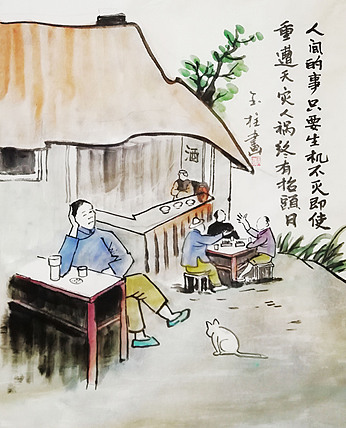 人间的事只要生机不灭即使
重遭天灾人祸终有抬頭日
玉柱畫
酒